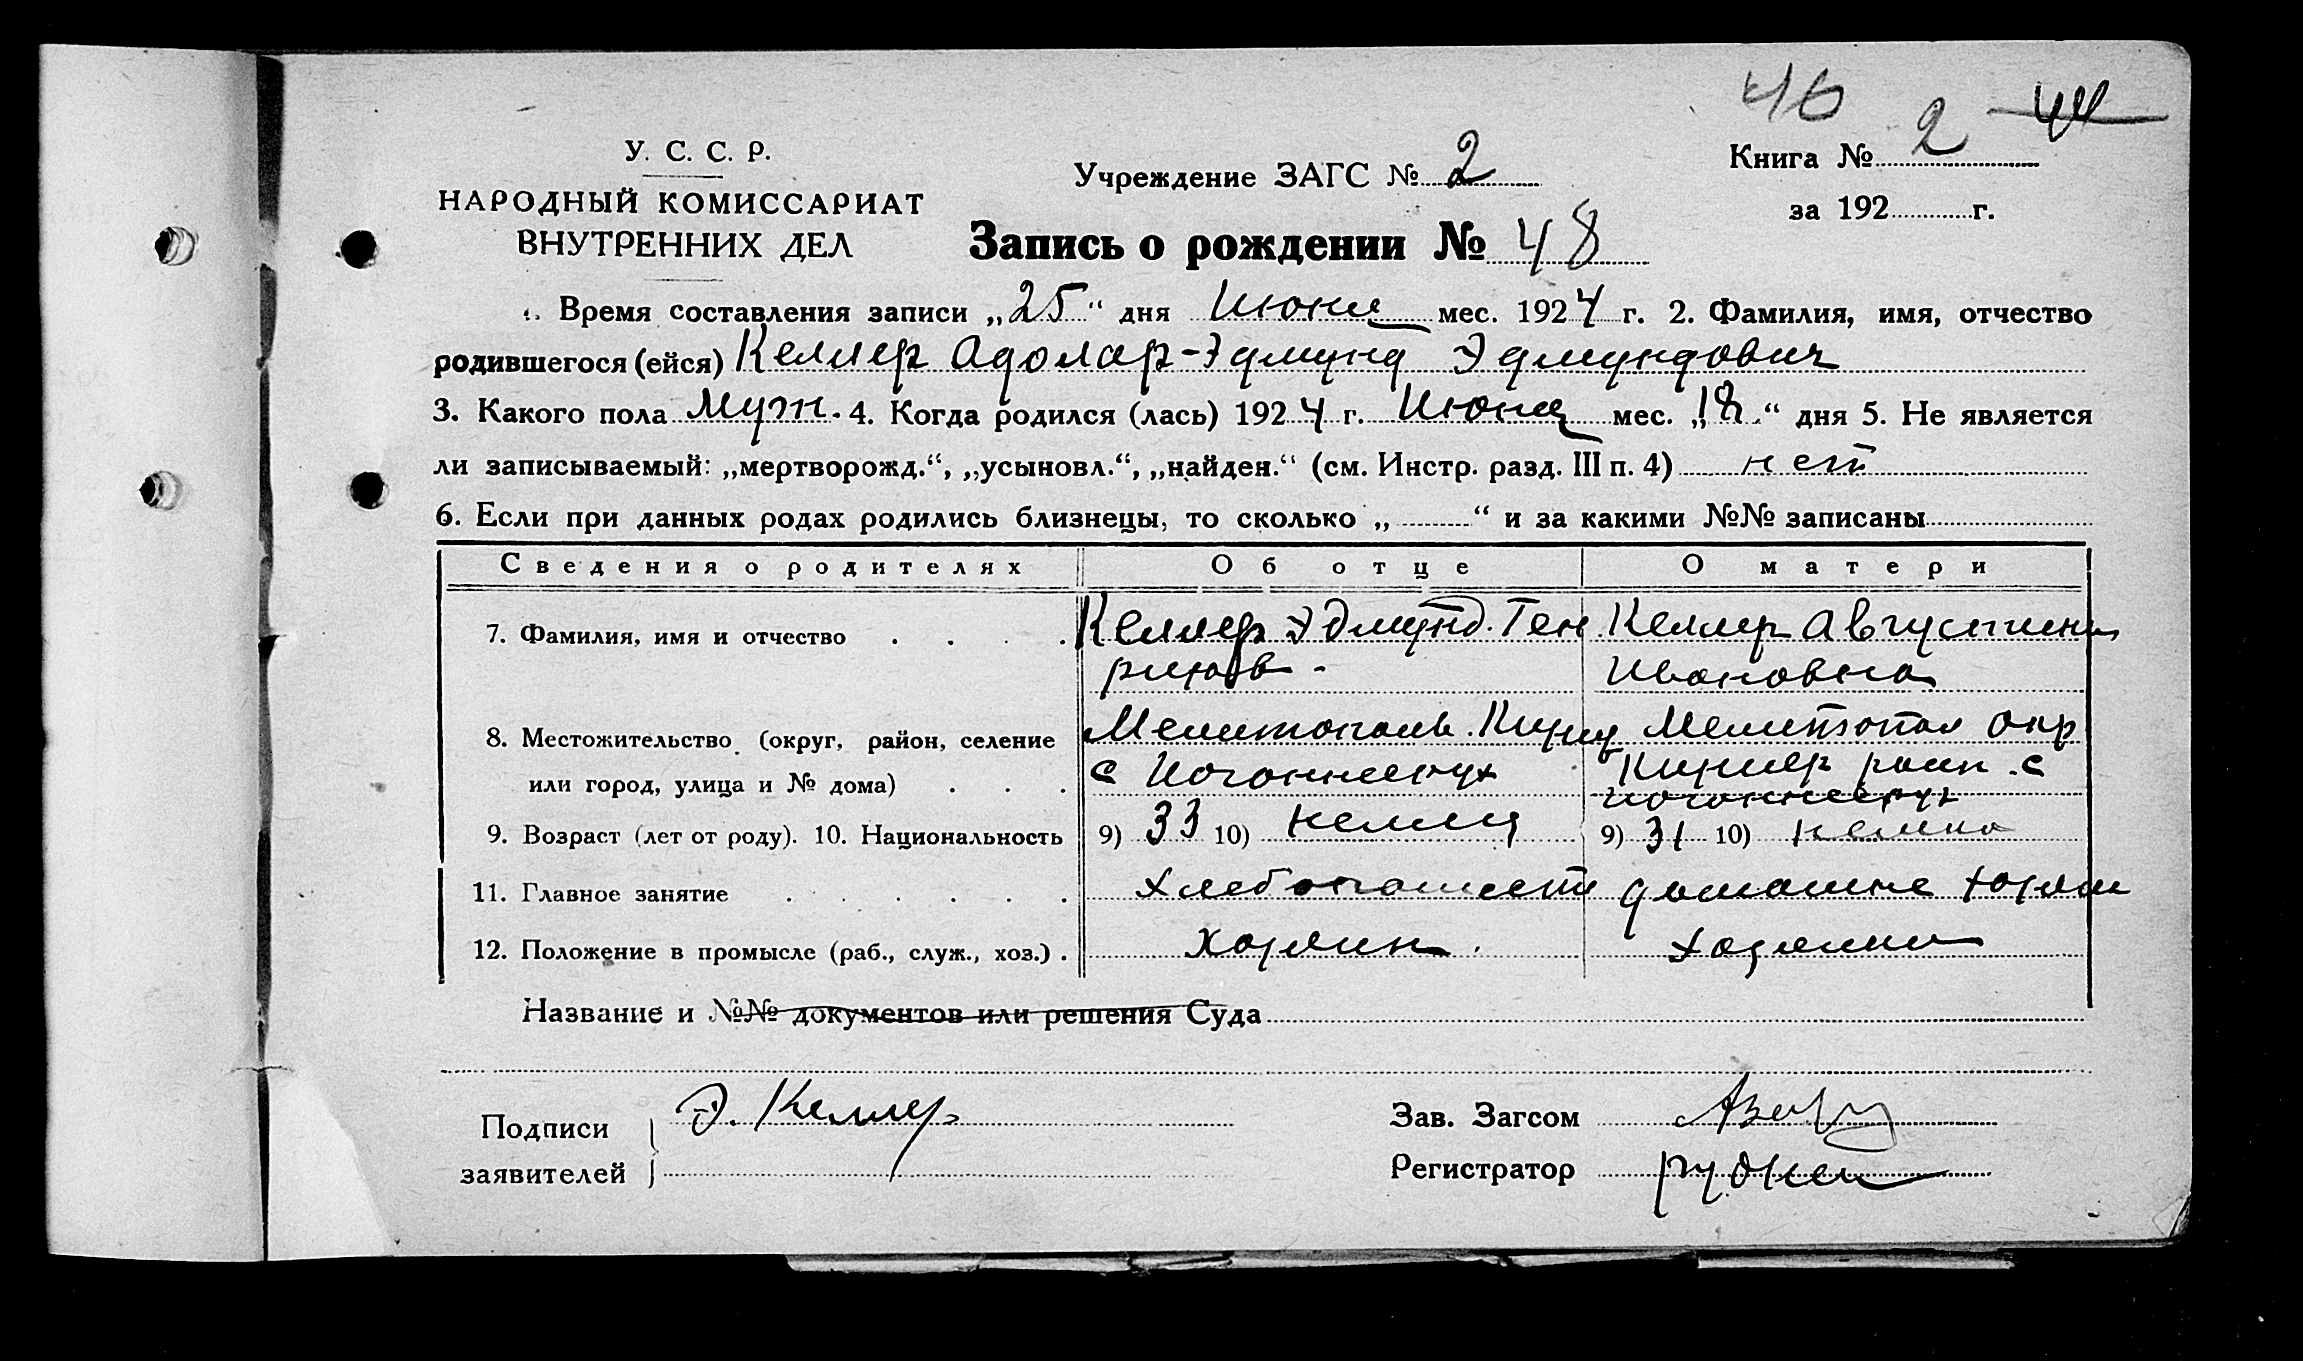 46
44
У. С. С. Р.
НАРОДНЫЙ КОМИССАРИАТ
ВНУТРЕННИХ ДЕЛ
Учреждение ЗАГС № 2
Книга № 2
за 192 г.
Запись о рождении № 48
1. Время составления записи „25“ дня Июня мес. 1924 г. 2. Фамилия, имя, отчество
родившегося (ейся) Келлер Адолар-Эдмунд Эдмундович
3. Какого пола муж. 4. Когда родился (лась) 1924 г. Июня мес. „18“ дня 5. Не является
ли записываемый: „мертворожд.“, „усыновл.“, „найден.“ (см. Инстр. разд. III п. 4) нет
6. Если при данных родах родились близнецы, то сколько „ “ и за какими №№ записаны
Сведения о родителях Об отце О матери
7. Фамилия, имя и отчество Келлер Эдмунд. Ген Келлер Августина
рихов- Ивановна
8. Местожительство (округ, район, селение Мелитополь. Мелитопол окр
или город, улица и № дома) с Иоганнесру раин. с
Иоганнесру
9. Возраст (лет от роду). 10. Национальность 9) 33 10) немец 9) 31 10) немка
11. Главное занятие Хлебопашест домашне хозяи
12. Положение в промысле (раб., служ., хоз.) хозяин. хозяика
Название и №№ документов или решения Суда
Подписи Э. Келлер Зав. Загсом
заявителей Регистратор